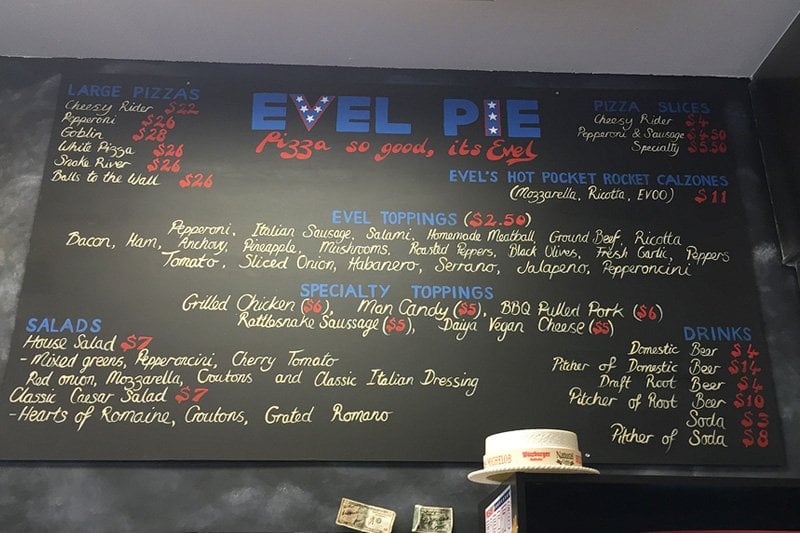 LARGE PIZZAS
Cheesy Rider $22
Pepperoni $26
Goblin $28
White Pizza $26
Snake River $26
Balls to the Wall $26
EVEL PIE
Pizza so good, its Evel
PIZZA SLICES
Cheesy Rider $4
Pepperoni & Sausage $4.50
Specialty $5.50
EVEL'S HOT POCKET ROCKET CALZONES
(Mozzarella, Ricotta, EVOO) $11
EVEL TOPPINGS ($2.50)
Pepperoni, Italian Sausage, Salami, Homemade Meatball, Ground Beef, Ricotta
Bacon, Ham, Anchovy, Pineapple, Mushrooms, Roasted Peppers, Black Olives, Fresh Garlic, Peppers
Tomato, Sliced Onion, Habanero, Serrano, Jalapeno, Pepperoncini
SPECIALTY TOPPINGS
Grilled Chicken ($6), Man Candy ($5), BBQ Pulled Pork ($6)
Rattlesnake Saussage ($5), Daiya Vegan Cheese ($5)
SALADS
House Salad $7
- Mixed greens, Pepperoncini, Cherry Tomato
Red onion, Mozzarella, Croutons and Classic Italian Dressing
Classic Caesar Salad $7
- Hearts of Romaine, Croutons, Grated Romano
DRINKS
Domestic Beer $4
Pitcher of Domestic Beer $14
Draft Root Beer $4
Pitcher of Root Beer $10
Soda $3
Pitcher of Soda $8
Würzburger
Natural